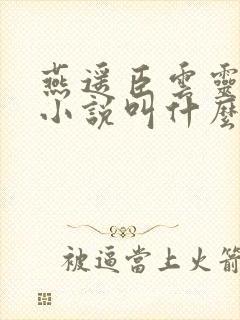 燕遥臣雲靈
小說叫什麼
被逼當上火箭